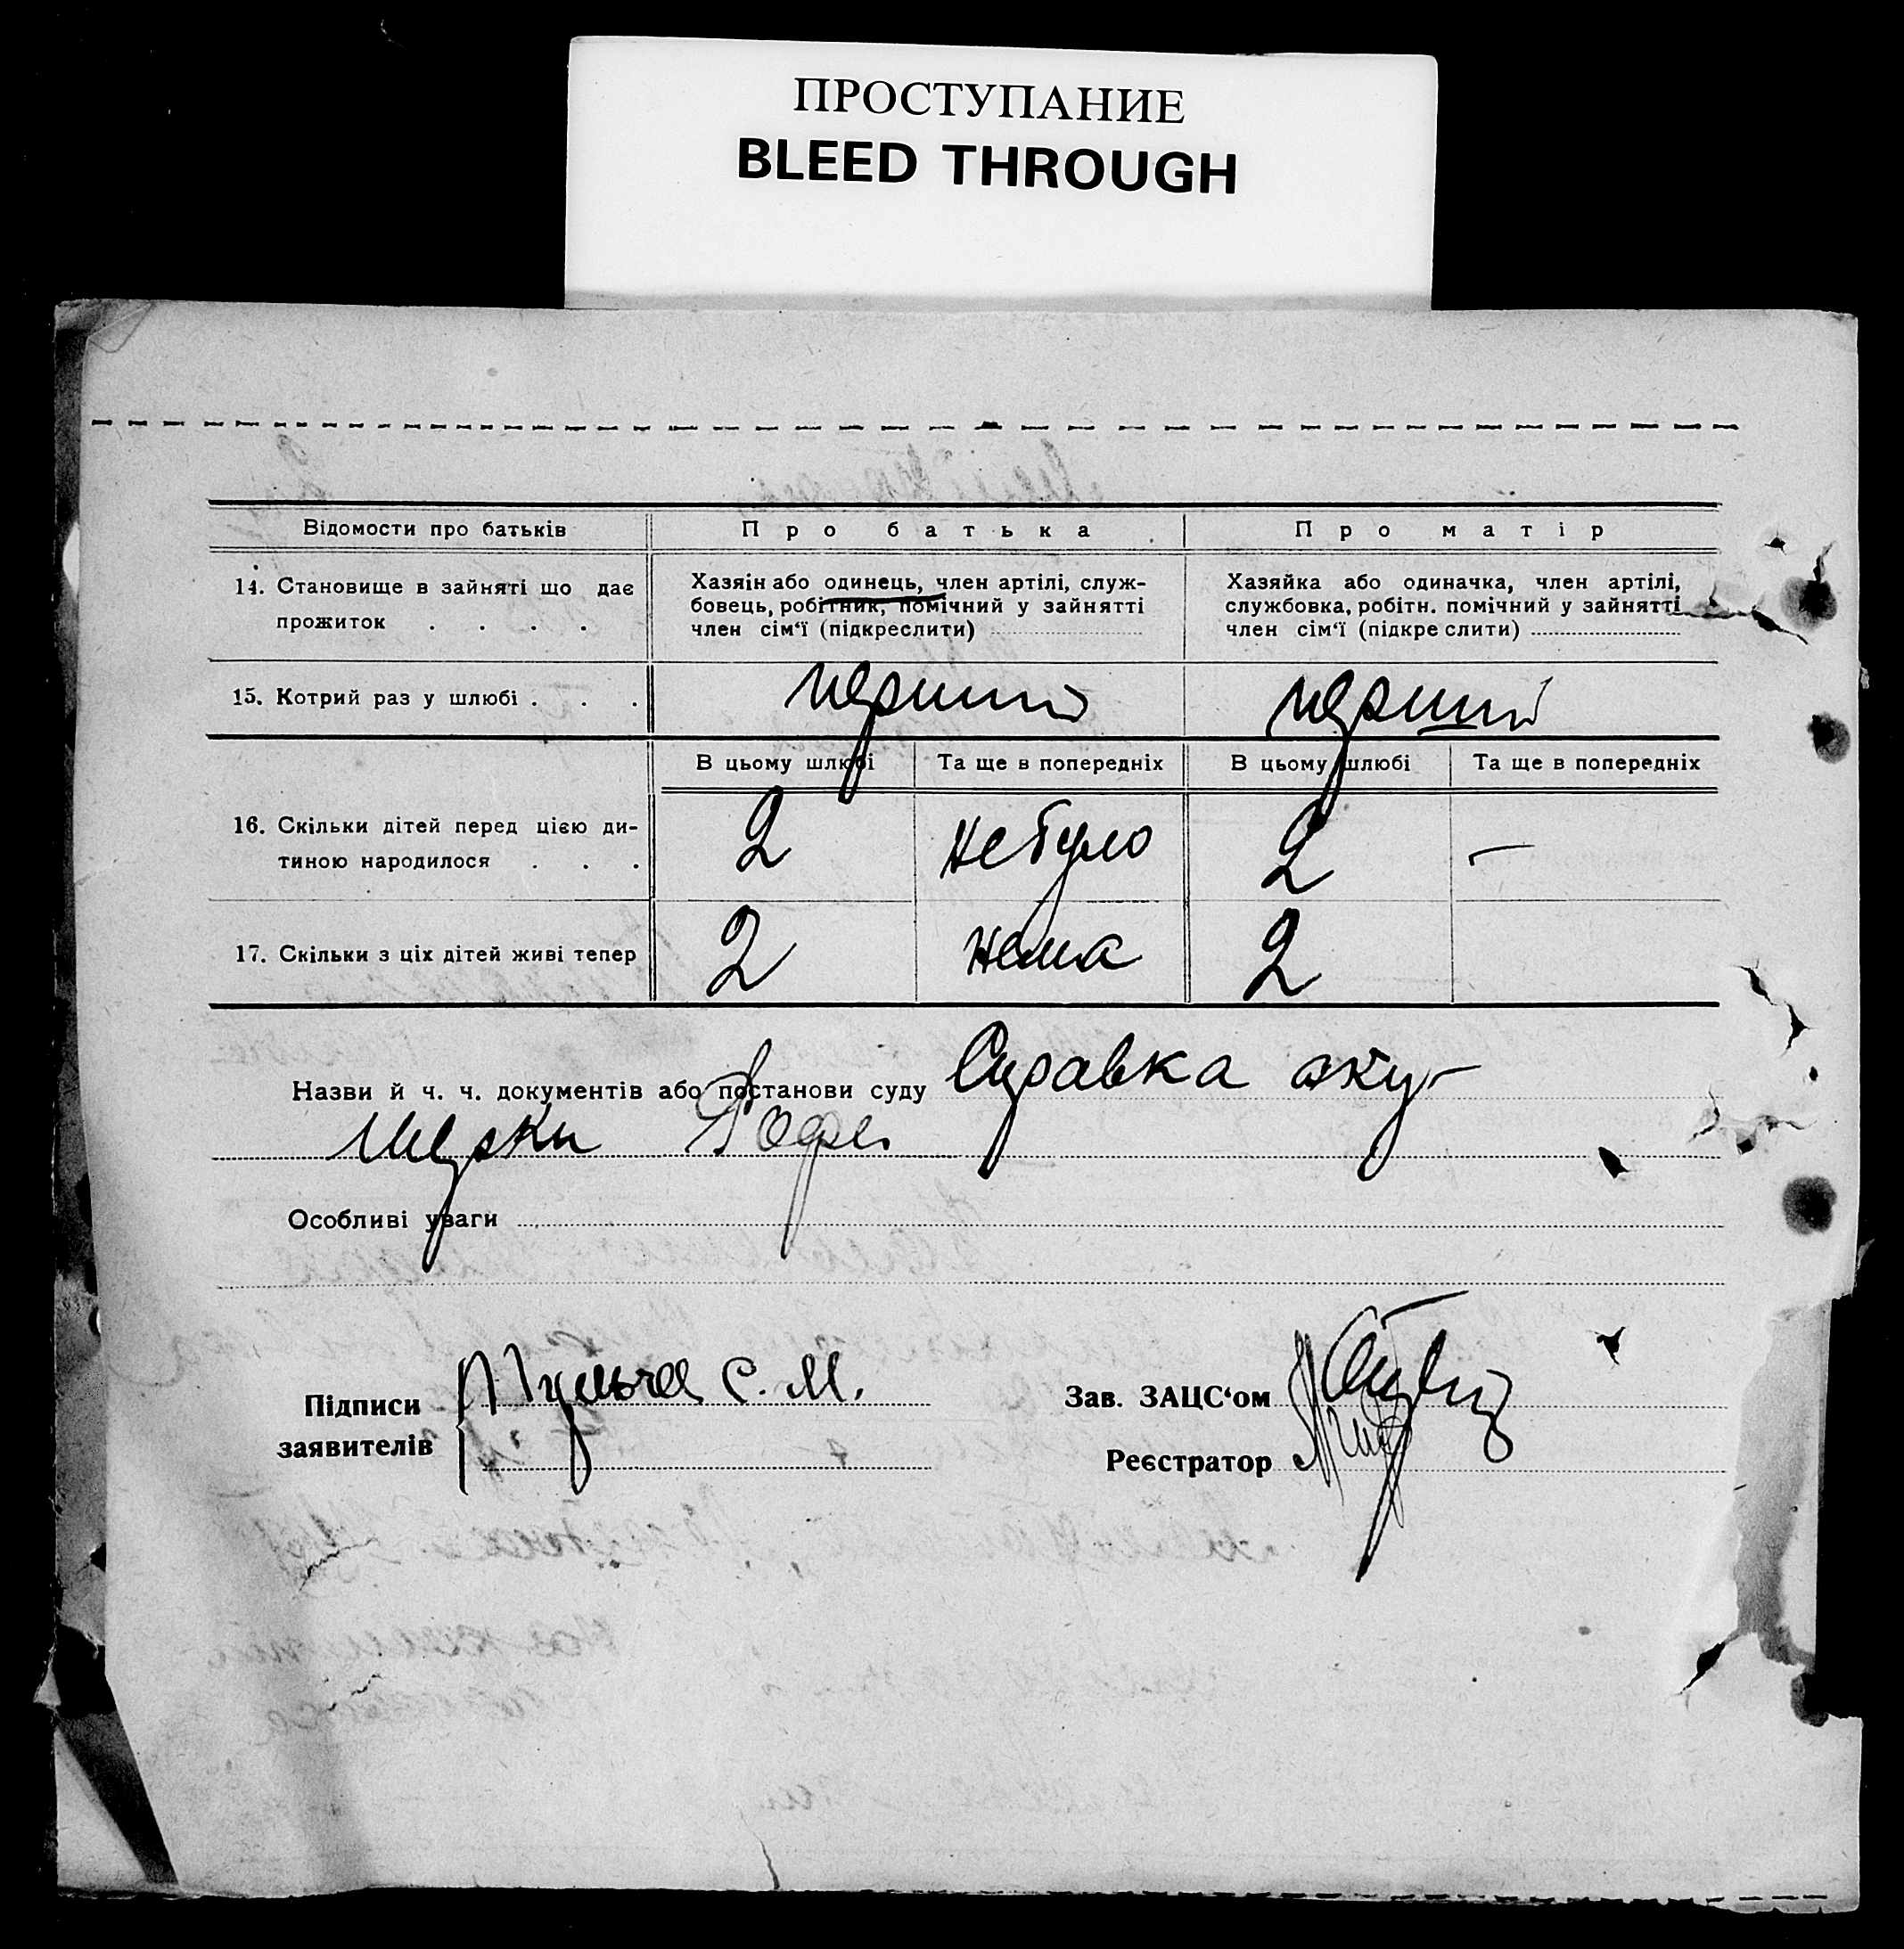 ПРОСТУПАНИЕ
BLEED THROUGH
Відомости про батьків
Про батька
Про матір
14. Становище в зайняті що дає
прожиток . . . .
Хазяін або одинець, член артілі, служ-
бовець, робітник, помічний у зайнятті
член сім‘ї (підкреслити)
Хазяйка або одиначка, член артілі,
службовка, робітн. помічний у зайнятті
член сім‘ї (підкреслити)
15. Котрий раз у шлюбі . . .
перший
перший
В цьому шлюбі
Та ще в попередніх
В цьому шлюбі
Та ще в попередніх
16. Скільки дітей перед цією ди-
тиною народилося . . .
2
не було
2
—
17. Скільки з ціх дітей живі тепер
2
нема
2
Назви й ч. ч. документів або постанови суду Справка аку-
шерки
Особливі уваги
Підписи
заявителів
С. М.
Зав. ЗАЦС‘ом
Реєстратор